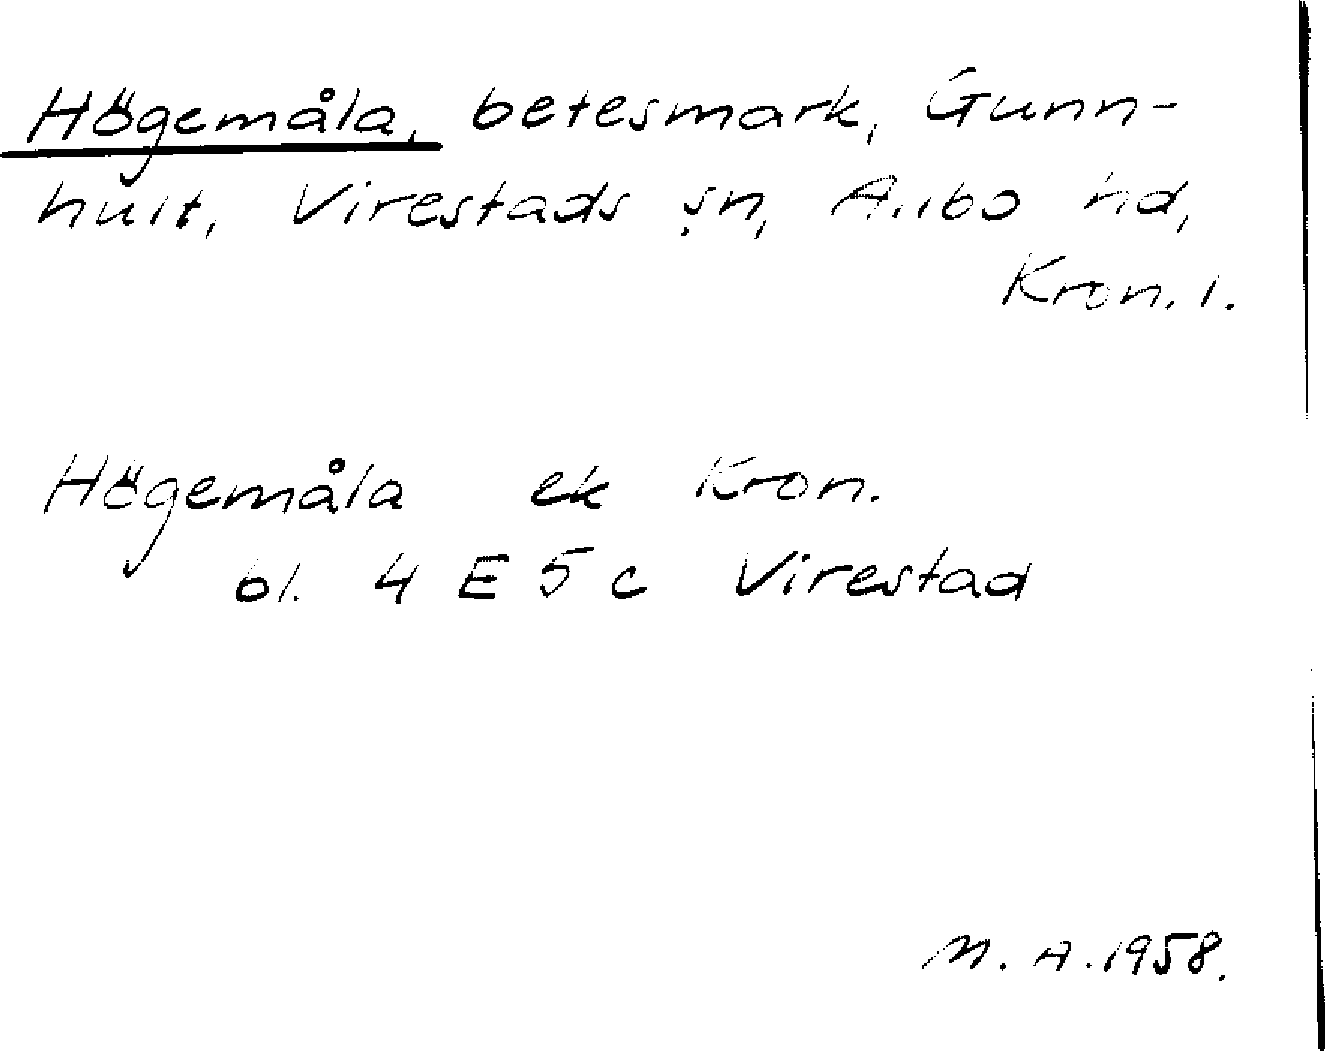 Högemåla, betesmark, Gunn-
hult, Virestads sn, Allbo hd,
Kron. l.
Högemåla ek Kron.
bl. 4 E 5 c Virestad
M. A. 1958.